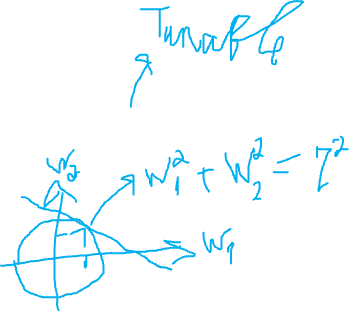 Tunable
w₂
w₁² + w₂² = 7²
w₁